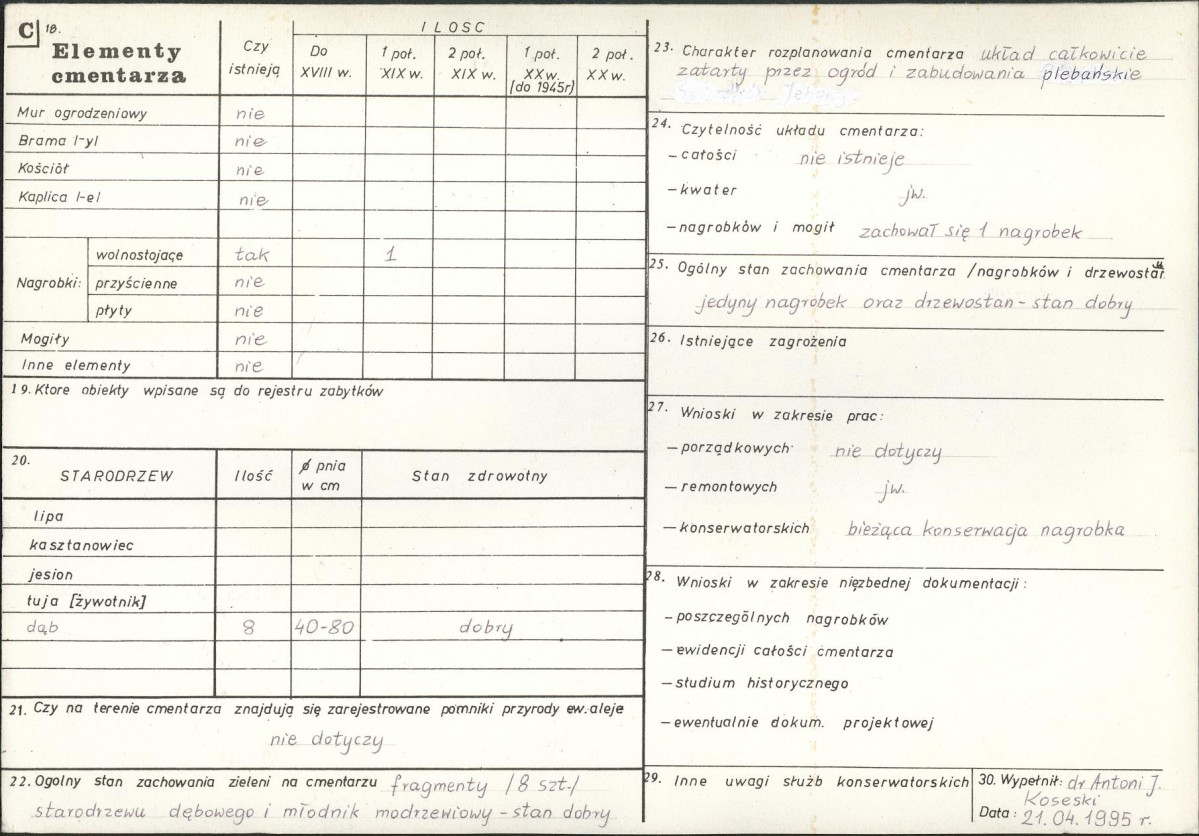 C 18.
Elementy
cmentarza
Czy
istnieją
ILOSC
Do
XVIII w.
1 poł.
XIX w.
2 poł.
XIX w.
1 poł.
XX w.
[do 1945r]
2 poł.
XX w.
Mur ogrodzeniowy nie
Brama /-y/ nie
Kościół nie
Kaplica /-e/ nie
Nagrobki: wolnostojące tak 1
przyścienne nie
płyty nie
Mogiły nie
Inne elementy nie
19. Ktore obiekty wpisane są do rejestru zabytków
20.
STARODRZEW Ilość ø pnia
w cm Stan zdrowotny
lipa
kasztanowiec
jesion
tuja [żywotnik]
dąb 8 40-80 dobry
21. Czy na terenie cmentarza znajdują się zarejestrowane pomniki przyrody ew. aleje
nie dotyczy
22. Ogolny stan zachowania zieleni na cmentarzu fragmenty /8 szt./
starodrzewu dębowego i młodnik modrzewiowy - stan dobry
23. Charakter rozplanowania cmentarza układ całkowicie
zatarty przez ogród i zabudowania plebańskie
24. Czytelność układu cmentarza:
- całości nie istnieje
- kwater jw.
- nagrobków i mogił zachował się 1 nagrobek
25. Ogólny stan zachowania cmentarza /nagrobków i drzewostan
jedyny nagrobek oraz drzewostan - stan dobry
26. Istniejące zagrożenia
27. Wnioski w zakresie prac:
- porządkowych nie dotyczy
- remontowych jw.
- konserwatorskich bieżąca konserwacja nagrobka
28. Wnioski w zakresie niezbędnej dokumentacji:
- poszczególnych nagrobków
- ewidencji całości cmentarza
- studium historycznego
- ewentualnie dokum. projektowej
29. Inne uwagi służb konserwatorskich
30. Wypełnił: dr Antoni J.
Koseski
Data: 21.04.1995 r.